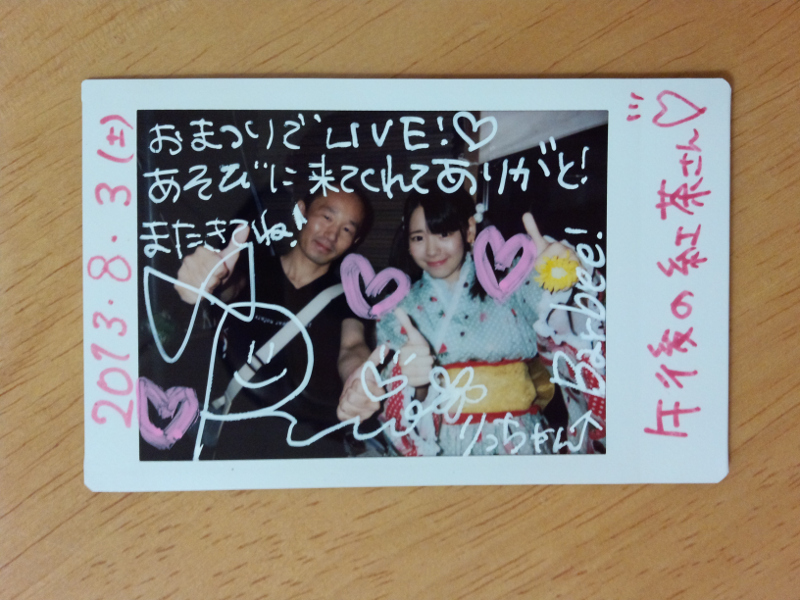 おまつりでLIVE!♡
あそびに来てくれてありがと!
またきてね!
Barbee!
りっちゃん↑
2013.8.3(土)
午後の紅茶さん♡